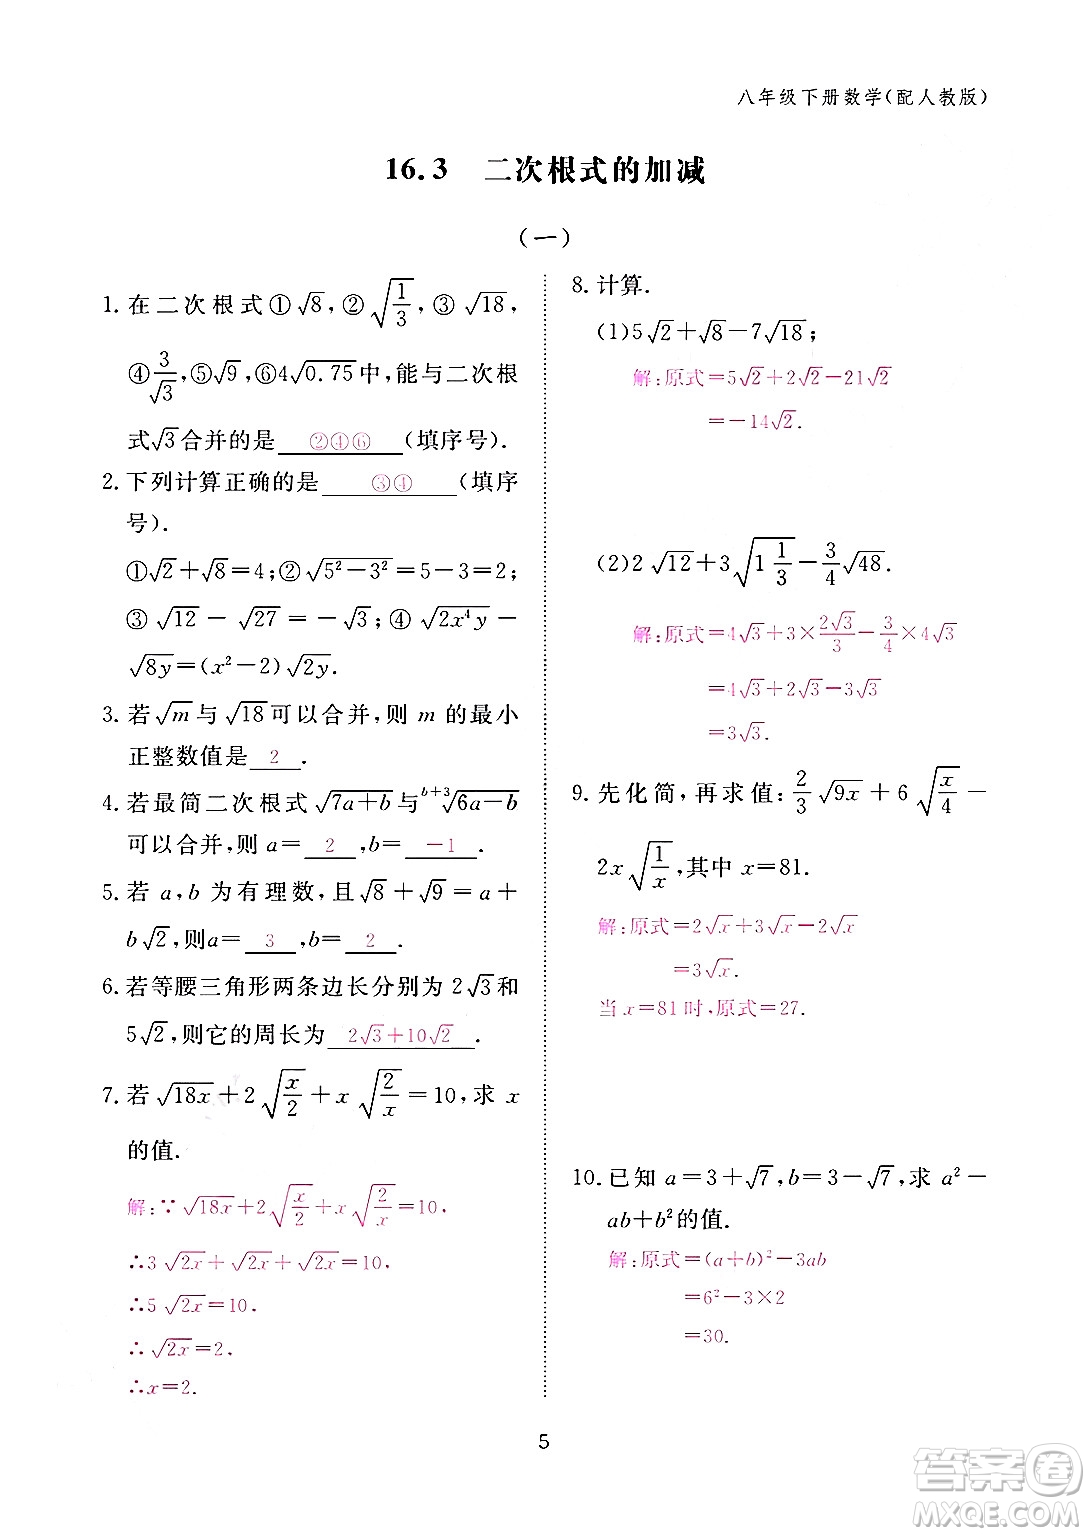 八年级下册数学(配人教版)
16.3 二次根式的加减
(一)
1. 在二次根式①√8,②√(1/3),③√18,
④3/√3,⑤√9,⑥4√0.75中,能与二次根
式√3合并的是 ②④⑥ (填序号).
2. 下列计算正确的是 ③④ (填序
号).
①√2+√8=4;②√(5²-3²)=5-3=2;
③√12-√27=-√3;④√(2x⁴y)-
√(8y)=(x²-2)√(2y).
3. 若√m与√18可以合并,则 m 的最小
正整数值是 2 .
4. 若最简二次根式√(7a+b)与ᵇ⁺³√(6a-b)
可以合并,则 a= 2 ,b= -1 .
5. 若 a,b 为有理数,且√8+√9=a+
b√2,则a= 3 ,b= 2 .
6. 若等腰三角形两条边长分别为 2√3和
5√2,则它的周长为 2√3+10√2 .
7. 若 √(18x)+2√(x/2)+x√(2/x)=10,求 x
的值.
解:∵√(18x)+2√(x/2)+x√(2/x)=10,
∴3√(2x)+√(2x)+√(2x)=10,
∴5√(2x)=10.
∴√(2x)=2.
∴x=2.
8. 计算.
(1)5√2+√8-7√18;
解:原式=5√2+2√2-21√2
=-14√2.
(2)2√12+3√(1 1/3)-3/4√48.
解:原式=4√3+3×2√3/3-3/4×4√3
=4√3+2√3-3√3
=3√3.
9. 先化简,再求值:2/3√(9x)+6√(x/4)-
2x√(1/x),其中 x=81.
解:原式=2√x+3√x-2√x
=3√x.
当 x=81时,原式=27.
10. 已知 a=3+√7,b=3-√7,求 a²-
ab+b²的值.
解:原式=(a+b)²-3ab
=6²-3×2
=30.
5
答案卷
MXQE.COM